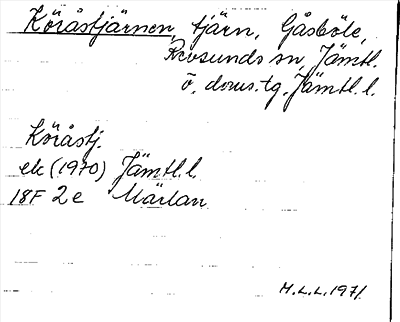 Köråstjärnen, tjärn, Gåsböle,
Revsunds sn, Jämtl.
ö. doms.tg, Jämtl. l.
Köråstj.
ek (1970) Jämtl. l.
18F 2e Märlan
M.L.L. 1971